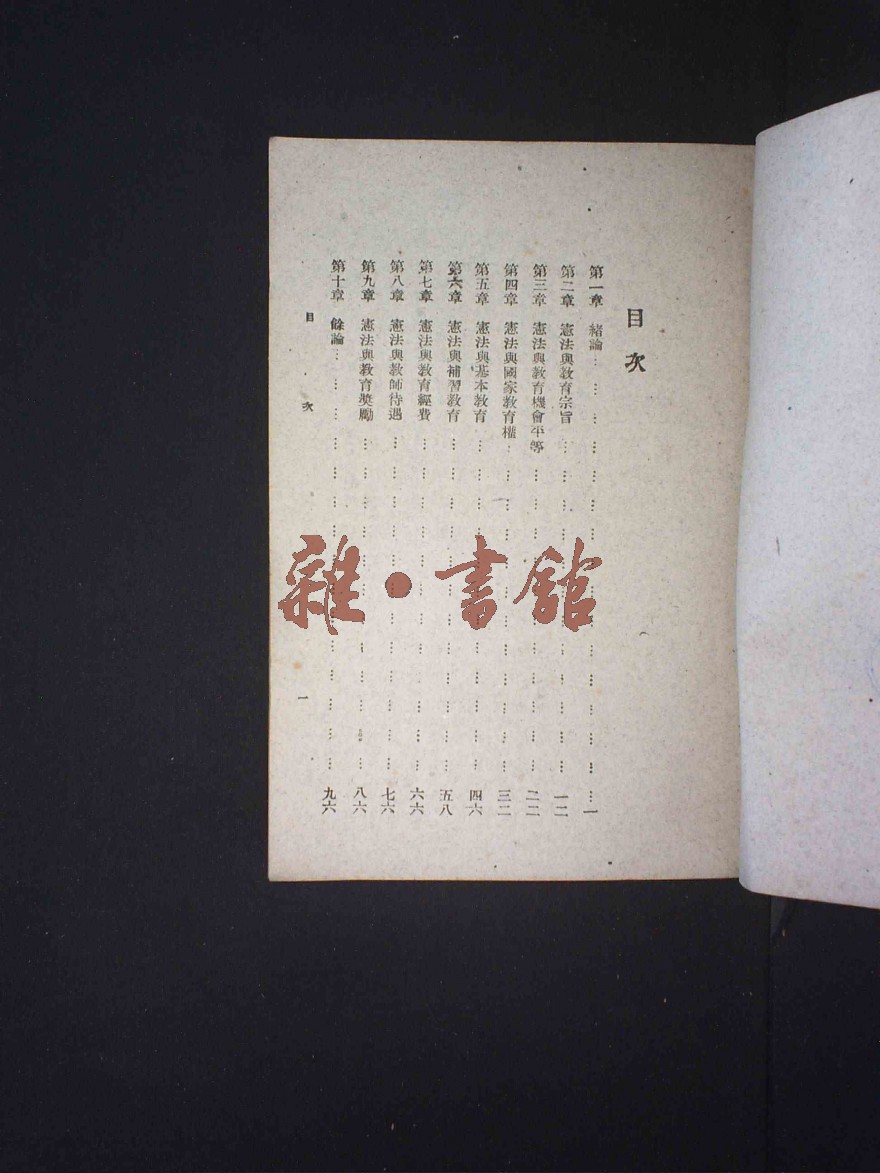 目次
第一章 緒論……………………………………一
第二章 憲法與教育宗旨……………………………………一二
第三章 憲法與教育機會平等……………………………………二二
第四章 憲法與國家教育權……………………………………三二
第五章 憲法與基本教育……………………………………四六
第六章 憲法與補習教育……………………………………五八
第七章 憲法與教育經費……………………………………六六
第八章 憲法與教師待遇……………………………………七六
第九章 憲法與教育奬勵……………………………………八六
第十章 餘論……………………………………九六
目次
一
雜·書館